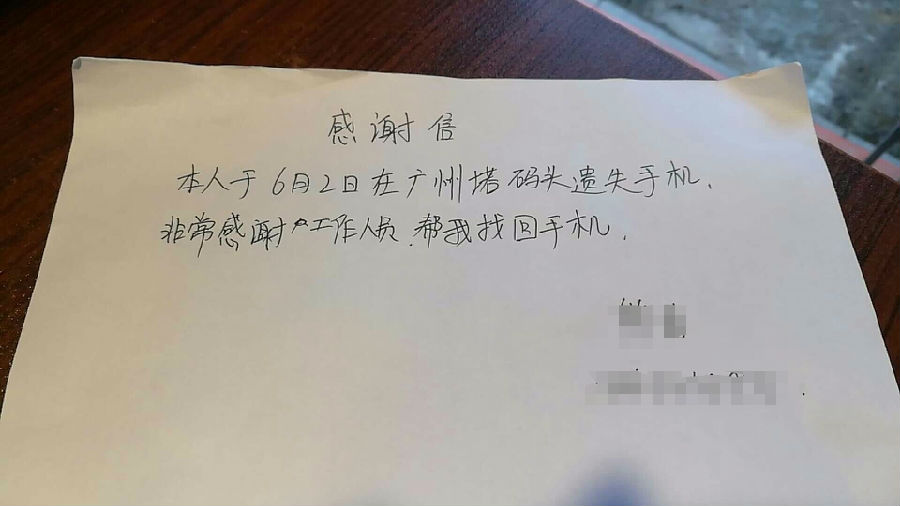 感谢信
本人于6月2日在广州塔码头遗失手机.
非常感谢工作人员.帮我找回手机.